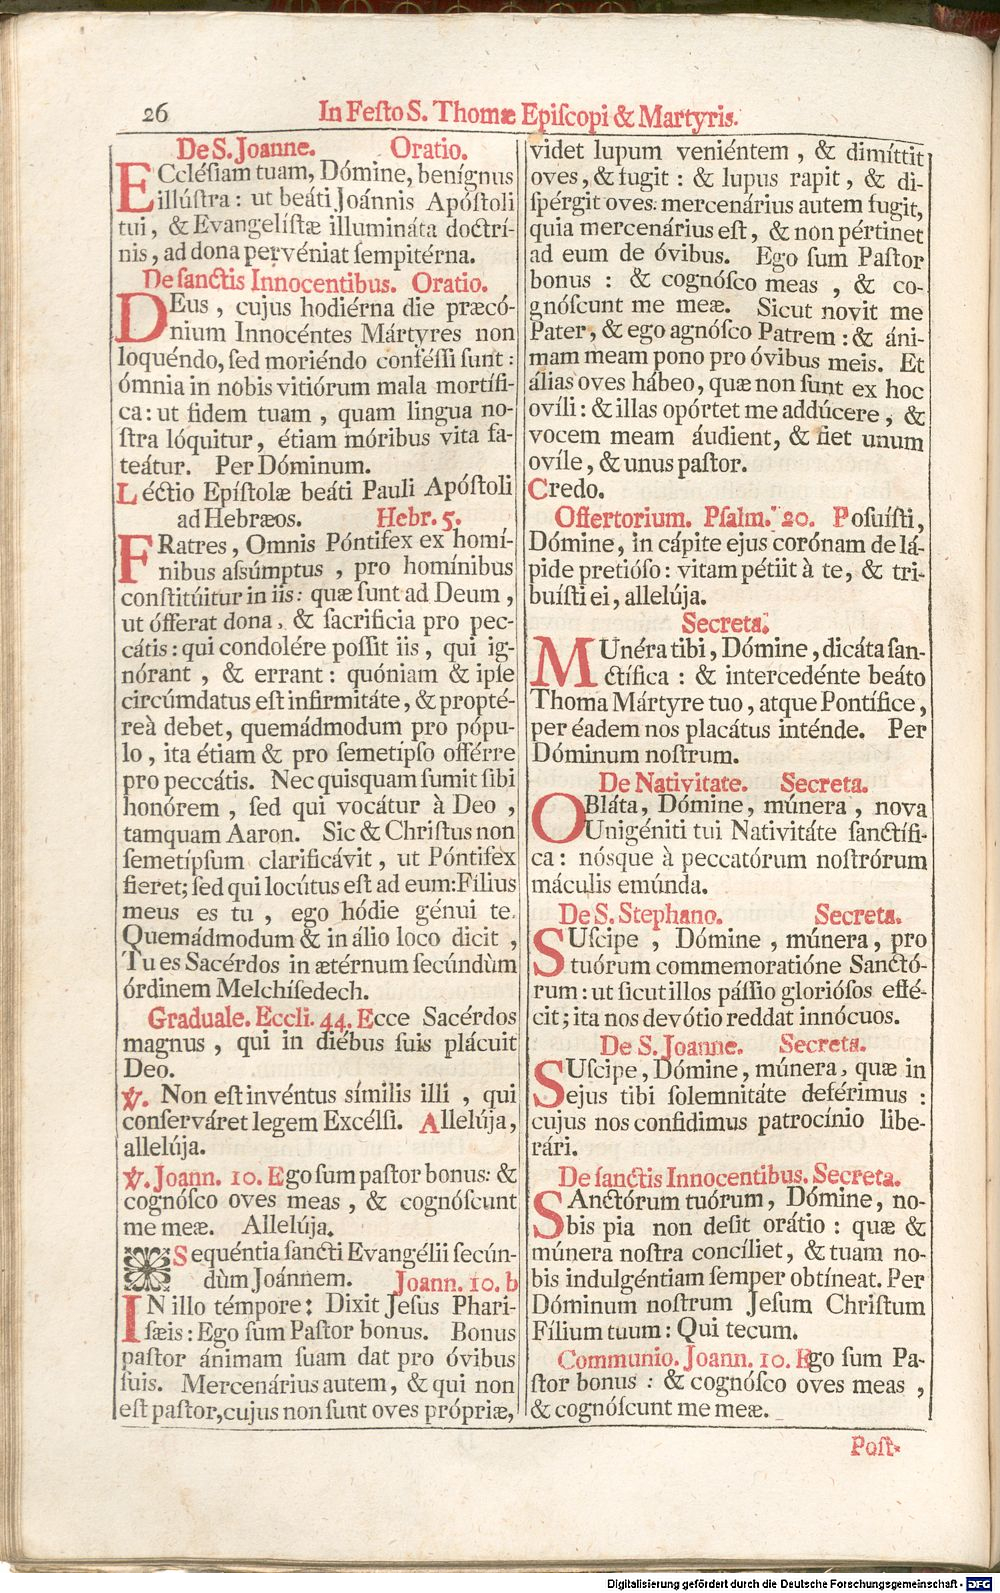 26
In Feſto S. Thomæ Epiſcopi & Martyris.
De S. Joanne. Oratio.
ECcléſiam tuam, Dómine, benígnus
illúſtra: ut beáti Joánnis Apóſtoli
tui, & Evangelíſtæ illumináta doctrí-
nis, ad dona pervéniat ſempitérna.
De ſanctis Innocentibus. Oratio.
DEus, cujus hodiérna die præcó-
nium Innocéntes Mártyres non
loquéndo, ſed moriéndo conféſſi ſunt:
ómnia in nobis vitiórum mala mortífi-
ca: ut fidem tuam, quam lingua no-
ſtra lóquitur, étiam móribus vita fa-
teátur. Per Dóminum.
Léctio Epíſtolæ beáti Pauli Apóſtoli
ad Hebræos. Hebr. 5.
FRatres, Omnis Póntifex ex homí-
nibus aſſúmptus, pro homínibus
conſtitúitur in iis: quæ ſunt ad Deum,
ut ófferat dona, & ſacrificia pro pec-
cátis: qui condolére poſſit iis, qui ig-
nórant, & errant: quóniam & ipſe
circúmdatus eſt infirmitáte, & propté-
reà debet, quemádmodum pro pópu-
lo, ita étiam & pro ſemetípſo offérre
pro peccátis. Nec quisquam ſumit ſibi
honórem, ſed qui vocátur à Deo,
tamquam Aaron. Sic & Chriſtus non
ſemetípſum clarificávit, ut Póntifex
fieret; ſed qui locútus eſt ad eum: Fílius
meus es tu, ego hódie génui te.
Quemádmodum & in álio loco dicit,
Tu es Sacérdos in ætérnum ſecúndùm
órdinem Melchíſedech.
Graduale. Eccli. 44. Ecce Sacérdos
magnus, qui in diébus ſuis plácuit
Deo.
℣. Non eſt invéntus símilis illi, qui
conſerváret legem Excélſi. Allelúja,
allelúja.
℣. Joann. 10. Ego ſum paſtor bonus: &
cognóſco oves meas, & cognóſcunt
me meæ. Allelúja.
Sequéntia ſancti Evangélii ſecún-
dùm Joánnem. Joann. 10. b
IN illo témpore: Dixit Jeſus Phari-
ſæis: Ego ſum Paſtor bonus. Bonus
paſtor ánimam ſuam dat pro óvibus
ſuis. Mercenárius autem, & qui non
eſt paſtor, cujus non ſunt oves própriæ,
videt lupum veniéntem, & dimíttit
oves, & fugit: & lupus rapit, & di-
ſpérgit oves: mercenárius autem fugit,
quia mercenárius eſt, & non pértinet
ad eum de óvibus. Ego ſum Paſtor
bonus: & cognóſco meas, & co-
gnóſcunt me meæ. Sicut novit me
Pater, & ego agnóſco Patrem: & áni-
mam meam pono pro óvibus meis. Et
álias oves hábeo, quæ non ſunt ex hoc
ovíli: & illas opórtet me addúcere, &
vocem meam áudient, & fiet unum
ovíle, & unus paſtor.
Credo.
Offertorium. Pſalm. 20. Poſuíſti,
Dómine, in cápite ejus corónam de lá-
pide pretióſo: vitam pétiit à te, & tri-
buíſti ei, allelúja.
Secreta.
MUnéra tibi, Dómine, dicáta ſan-
ctífica: & intercedénte beáto
Thoma Mártyre tuo, atque Pontífice,
per éadem nos placátus inténde. Per
Dóminum noſtrum.
De Nativitate. Secreta.
OBláta, Dómine, múnera, nova
Unigéniti tui Nativitáte ſanctífi-
ca: nósque à peccatórum noſtrórum
máculis emúnda.
De S. Stephano. Secreta.
SUſcipe, Dómine, múnera, pro
tuórum commemoratióne Sanctó-
rum: ut ſicut illos páſſio glorióſos effé-
cit; ita nos devótio reddat innócuos.
De S. Joanne. Secreta.
SUſcipe, Dómine, múnera, quæ in
ejus tibi ſolemnitáte deférimus:
cujus nos confidimus patrocínio libe-
rári.
De ſanctis Innocentibus. Secreta.
SAnctórum tuórum, Dómine, no-
bis pia non deſit orátio: quæ &
múnera noſtra concíliet, & tuam no-
bis indulgéntiam ſemper obtíneat. Per
Dóminum noſtrum Jeſum Chriſtum
Fílium tuum: Qui tecum.
Communio. Joann. 10. Ego ſum Pa-
ſtor bonus: & cognóſco oves meas,
& cognóſcunt me meæ.
Poſt-
Digitalisierung gefördert durch die Deutsche Forschungsgemeinschaft - DFG